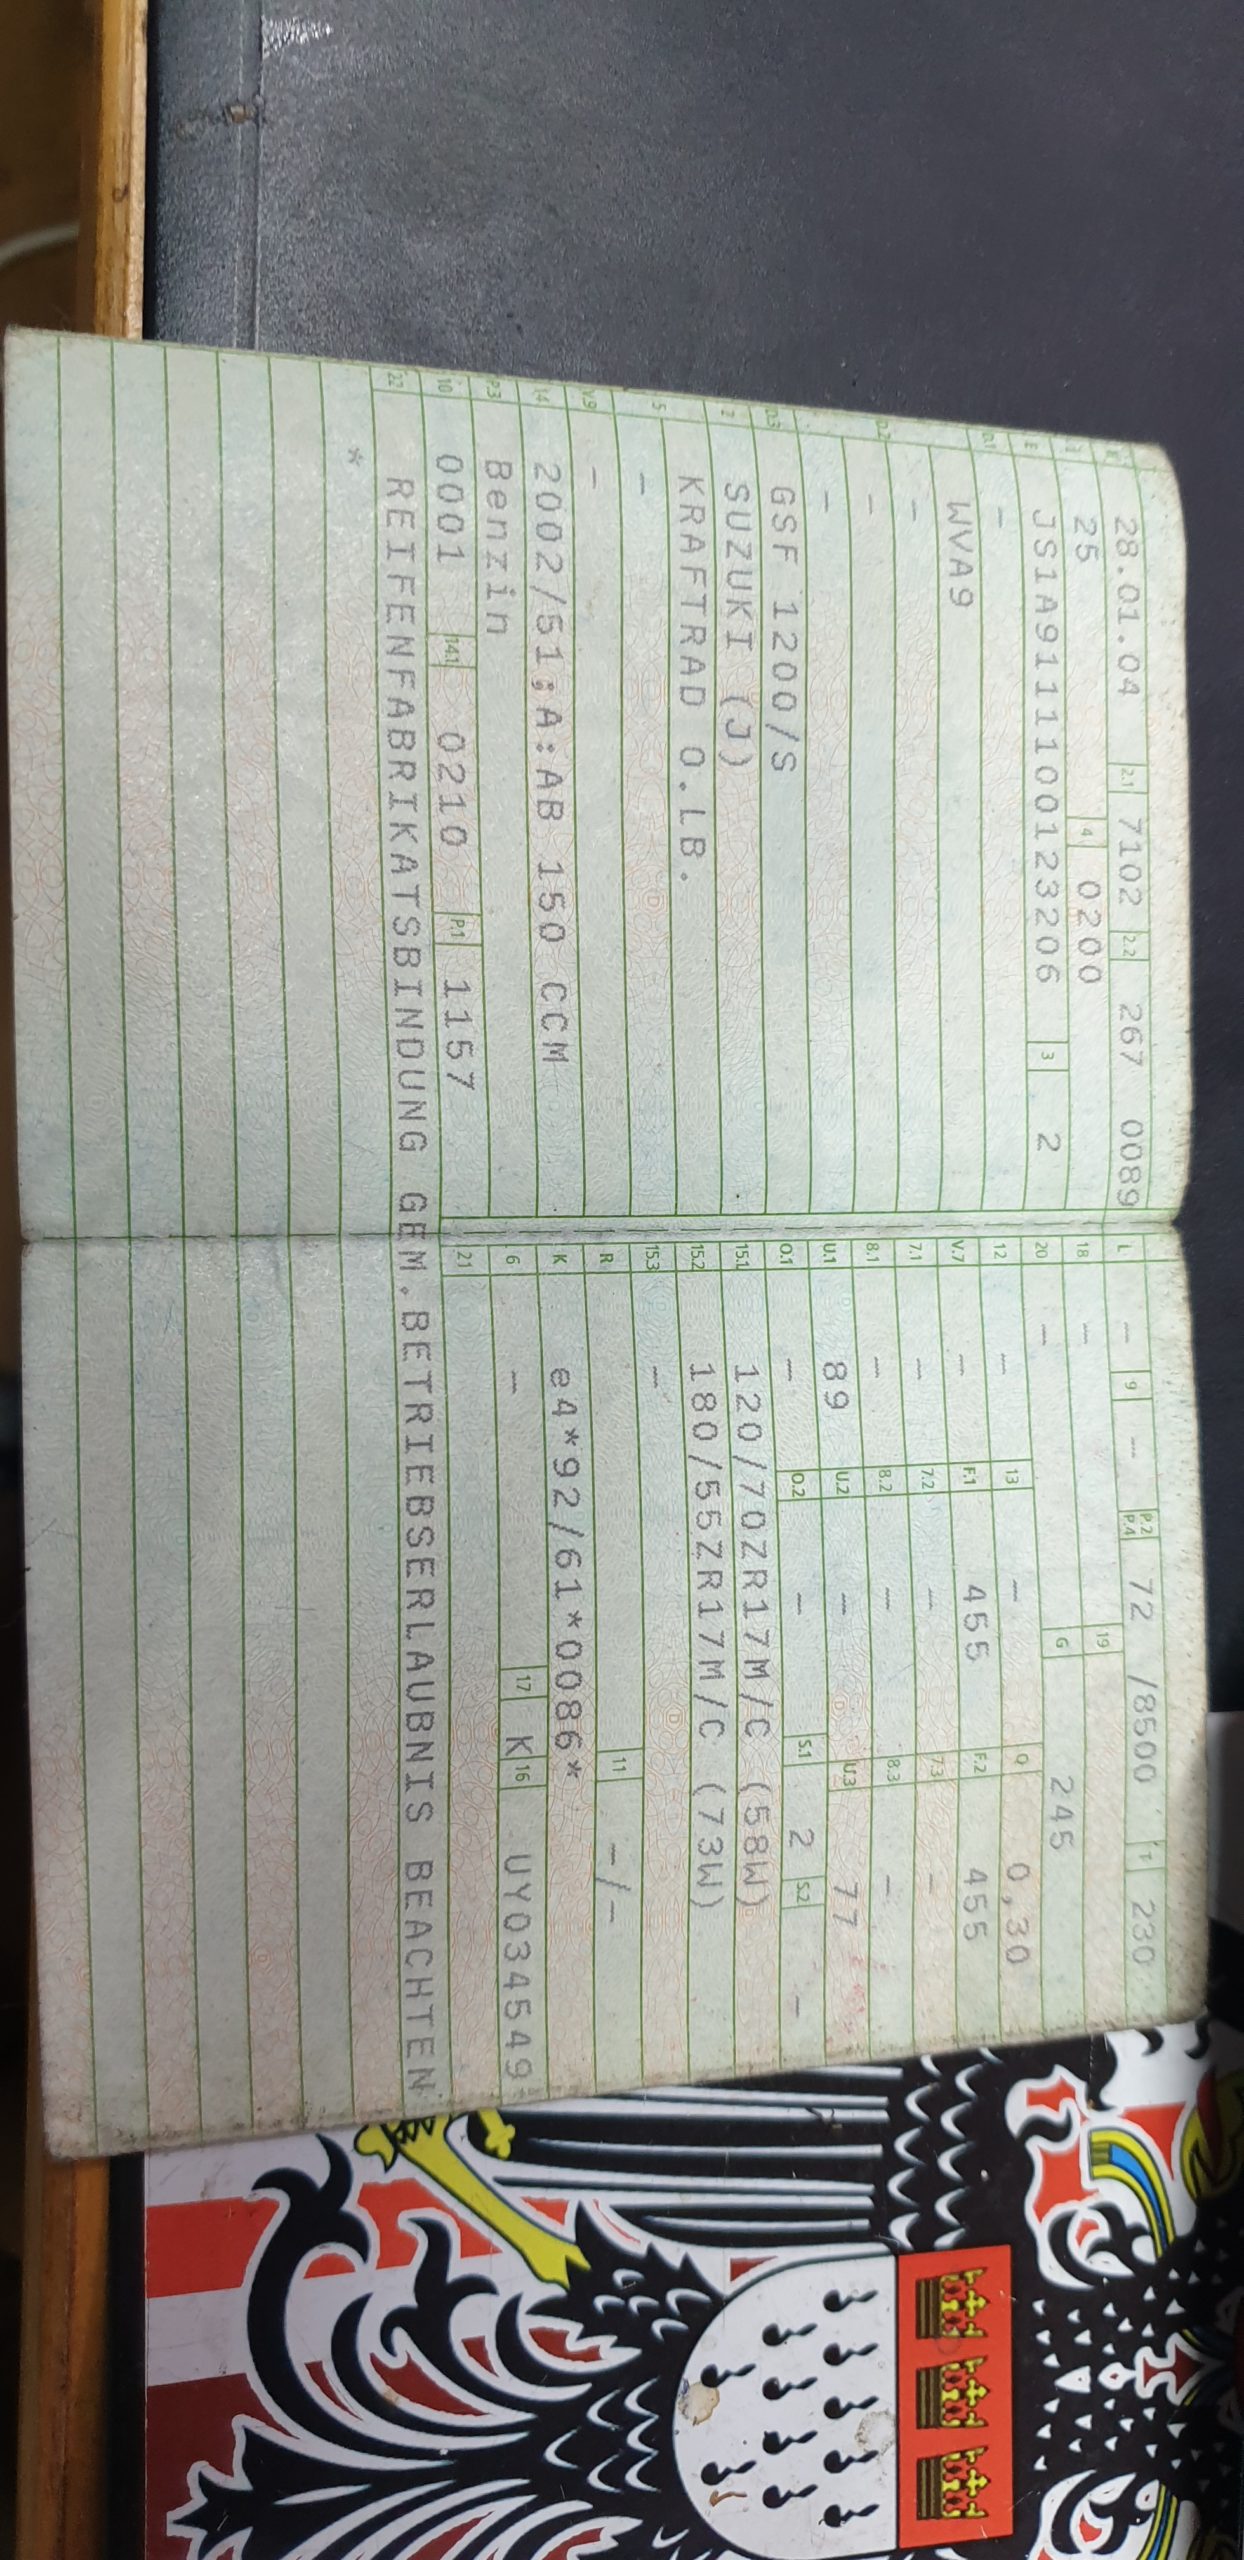 B 28.01.04 2.1 7102 2.2 267 0089 L - 9 - P.2 P.4 72 /8500 T 230
J 25 4 0200 18 - 19
E JS1A9111100123206 3 2 20 - G 245
D.1 - 12 - 13 - Q 0,30
WVA9 V.7 - F.1 455 F.2 455
D.2 - 7.1 - 7.2 - 7.3 -
- 8.1 - 8.2 - 8.3 -
- U.1 89 U.2 - U.3 77
D.3 GSF 1200/S O.1 - O.2 - S.1 2 S.2 -
2 SUZUKI (J) 15.1 120/70ZR17M/C (58W)
5 KRAFTRAD O.LB. 15.2 180/55ZR17M/C (73W)
- 15.3 -
V.9 - R 11 -/-
14 2002/51;A:AB 150 CCM K e4*92/61*0086*
P.3 Benzin 6 - 17 K 16 UY034549
10 0001 14.1 0210 P.1 1157 21
22 REIFENFABRIKATSBINDUNG GEM.BETRIEBSERLAUBNIS BEACHTEN
*